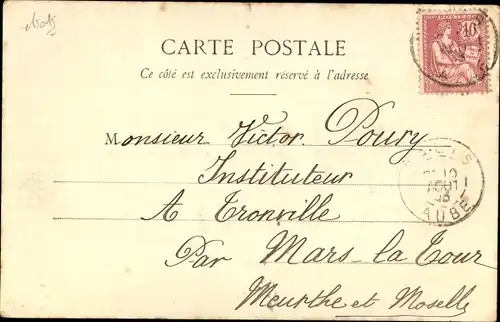 CARTE POSTALE
Ce côté est exclusivement réservé à l'adresse
10
Monsieur Victor Poury
Instituteur
A Tronville
Par Mars-la-Tour
Meurthe et Moselle
10
AOUT
AUBE